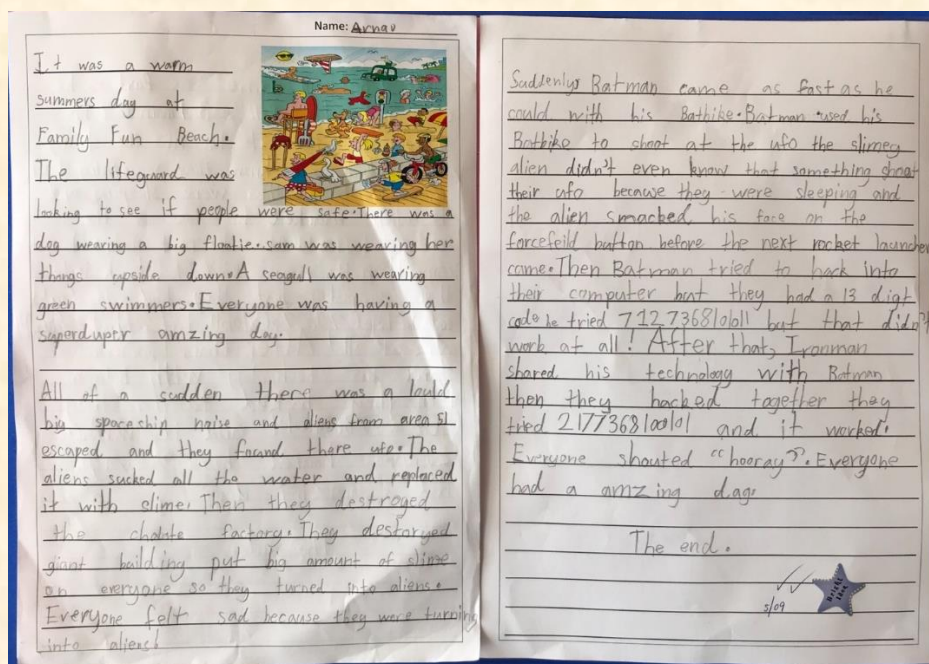 Name: Arnav
It was a warm
summers day at
Family Fun Beach.
The lifeguard was
looking to see if people were safe. There was a
dog wearing a big floatie. sam was wearing her
thongs upside down. A seagull was wearing
green swimmers. Everyone was having a
superduper amzing day.
All of a sudden there was a lould
big spaceship noise and aliens from area 51
escaped and they found there ufo. The
aliens sucked all the water and replaced
it with slime. Then they destroyed
the cholate factory. They destoryed
giant building put big amount of slime
on everyone so they turned into aliens.
Everyone felt sad because they were turning
into aliens!
Suddenly, Batman came as fast as he
could with his Batbike. Batman used his
Batbike to shoot at the ufo the slimey
alien didn't even know that something shoot
their ufo because they were sleeping and
the alien smacked his face on the
forcefeild button before the next rocket launcher
came. Then Batman tried to hack into
their computer but they had a 13 digt
code he tried but that didn't
work at all! After that, Ironman
shared his technology with Batman
then they hacked together they
tried and it worked.
Everyone shouted "hooray". Everyone
had a amzing day.
The end.
5/09
Bright Idea